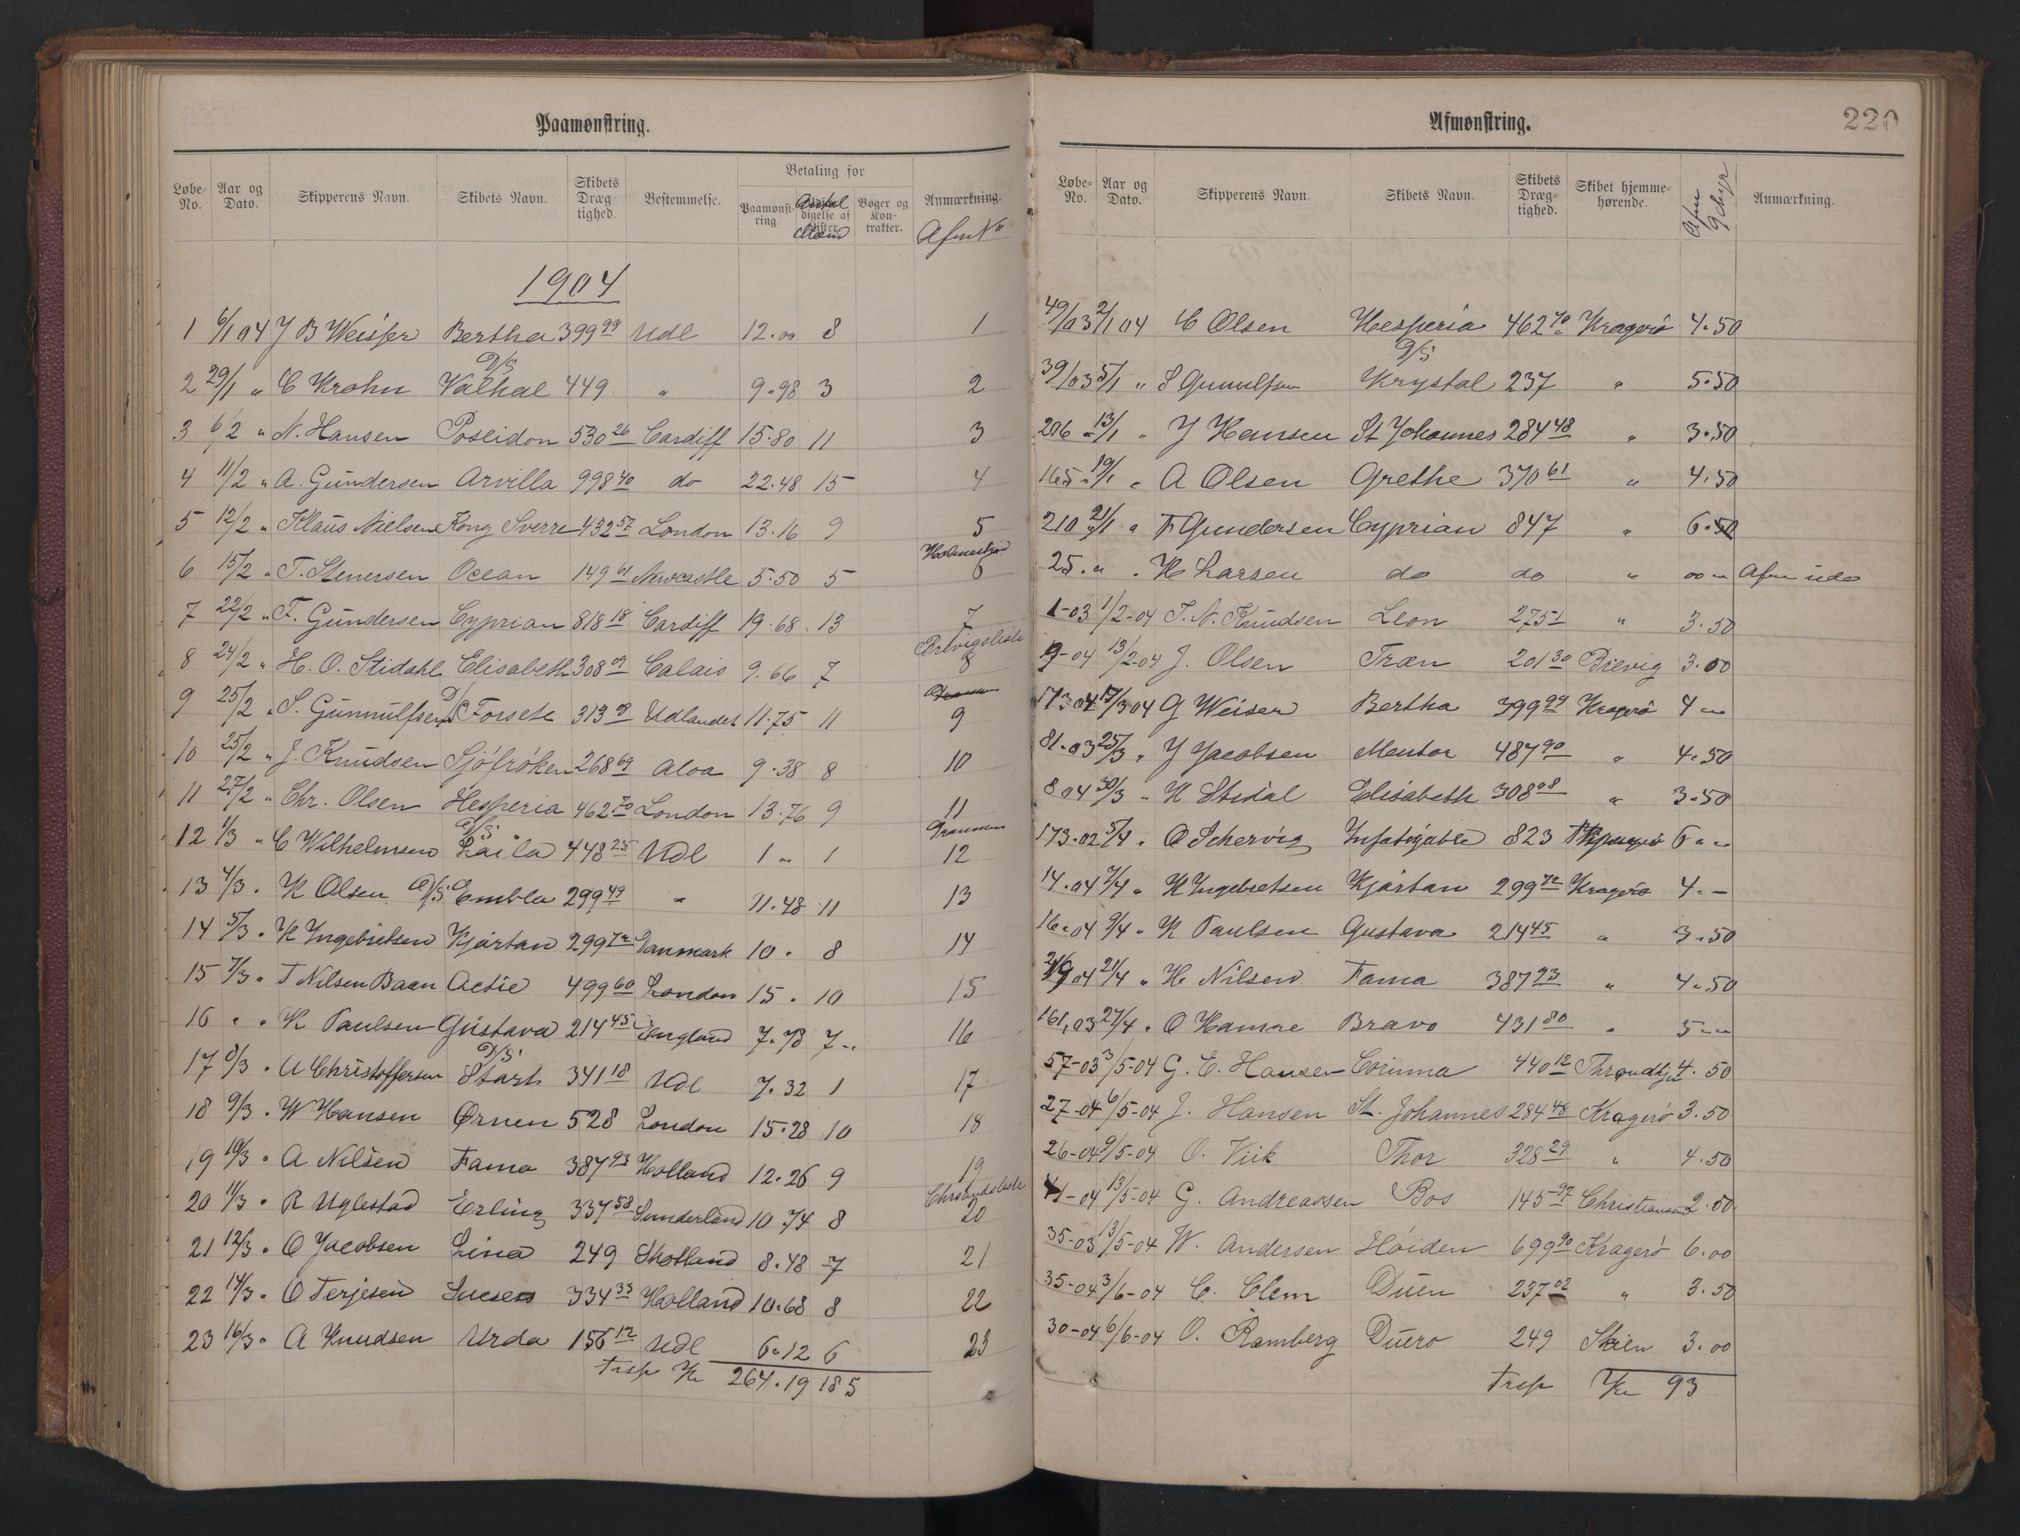 Paamønstring.
Løbe-No. Aar og Dato. Skipperens Navn. Skibets Navn. Skibets Dræg tighed. Bestemmelse. Betaling for Paamønst-ring. Antal Mand Bøger og Kon-trakter. Anmærkning. Afm No
1904
1 6/1 04 J B Weisser Bertha 399 99 Udl 12.00 8 1
2 29/1 " C Krohn D/S Valhal 449 " 9.98 3 2
3 6/2 " N. Hansen Poseidon 530 26 Cardiff 15.80 11 3
4 11/2 " A. Gundersen Arvilla 998 40 do 22.48 15 4
5 12/2 " Klaus Nielsen Kong Sverre 432 57 London 13.16 9 5
6 15/2 " T. Stenersen Ocean 149 61 Newcastle 5.50 5 6
7 22/2 " F. Gundersen Cyprian 818 18 Cardiff 19.68 13 7
8 24/2 " H. O. Stidahl Elisabeth 308 09 Calais 9.66 7 Brevigsliste 8
9 25/2 " S. Gunnulfsen D/S Forsete 313 Udlandet 11.75 11 9
10 25/2 " J. Knudsen Sjöfröken 268 69 Aloa 9.38 8 10
11 27/2 " Chr. Olsen Hesperia 462 70 London 13.76 9 11
12 1/3 " C Wilhelmsen D/S Laila 448 25 Udl 1 " 1 Drammen 12
13 4/3 " K Olsen D/S Embla 299 49 " 11.48 11 13
14 5/3 " K Ingebretsen Kjartan 299 72 Danmark 10 . 8 14
15 7/3 " T Nilsen Baan Actie 499 60 London 15 . 10 15
16 " " K Paulsen Gustava 214 45 England 7.78 7 16
17 8/3 " A Christoffersen D/S Start 341 18 Udl 7.32 1 17
18 9/3 " W Hansen Ørnen 528 London 15.28 10 18
19 10/3 " A Nilsen Fama 387 93 Holland 12.26 9 19
20 11/3 " R Uglestad Erling 337 58 Sunderland 10.74 8 Chrsandsliste 20
21 12/3 " O Jacobsen Lina 249 Skotland 8.48 7 21
22 14/3 " O Terjesen 334 35 Holland 10.68 8 22
23 16/3 " A Knudsen Urda 156 12 Udl 6.12 6 23
Trsp Kr 264.19 185
Afmønstring. 220
Løbe-No. Aar og Dato. Skipperens Navn. Skibets Navn. Skibets Dræg-tighed. Skibet hjemme-hørende. Afm Gebyr Anmærkning.
49/03 2/1 04 C Olsen Hesperia 462 70 Kragerö 4.50
39/03 5/1 " S Gunnulfsen D/S Krystal 237 " 5.50
206 " 13/1 " J Hansen St Johannes 284 48 " 3.50
165 " 19/1 " A Olsen Grethe 370 61 " 4.50
210 " 21/1 " F Gundersen Cyprian 847 " 6.50
25 " " H Larsen do do " 00 " Afm ude
1-03 1/2-04 T. N. Knudsen Leon 275 1 " 3.50
9-04 13/2-04 J. Olsen Træn 201 30 Brevig 3.00
1 04 17/3 04 G Weiser Bertha 399 99 Kragerö 4 "
81-03 25/3 " J Jacobsen Mentor 487 90 " 4.50
8 04 30/3 " K Stidal Elisabeth 308 08 " 3.50
173-02 5/4 " O Schervig Infatigable 823 Kragerö 6 "
14-04 7/4 " K Ingebretsen Kjartan 299 72 Kragerö 4.-
16-04 9/4 " K Paulsen Gustava 214 45 " 3.50
19 04 21/4 " H Nilsen Fama 387 93 " 4.50
161,03 27/4 " O Hamre Bravo 431 80 " 5 "
57-03 3/5-04 G. E. Hansen Corinna 440 12 Throndhjem 4.50
27-04 6/5-04 J. Hansen St. Johannes 284 48 Kragerö 3.50
26-04 9/5-04 O. Viik Thor 328 29 " 4.50
41-04 13/5-04 G. Andreassen Bos 145 97 Christiansand 2.50
35-03 13/5-04 W. Andersen Höiden 699 90 Kragerö 6.00
35-04 3/6-04 C. Clem Duen 237 02 " 3.50
30-04 6/6-04 O. Ramberg Duero 249 Skien 3.00
Trsp Kr 93